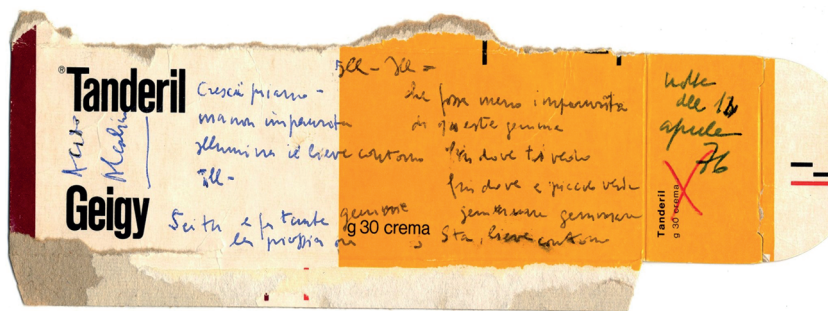 ®Tanderil
Geigy
Acido
Cresci piano -
ma non impaurita
illumina il lieve contorno
Ill -
Sei tu e fa tante gemme
la pioggia
Ill - Ill =
che fosse meno impaurita
di queste gemme
fin dove ti vedo
fin dove è piccolo verde
gemmare
Sta, lieve contorno
g 30 crema
notte
dell
aprile
76
Tanderil
g 30 crema